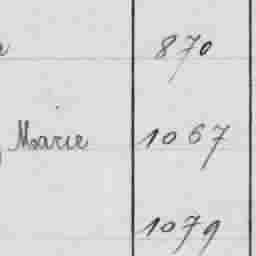 870
Marie 1067
1079